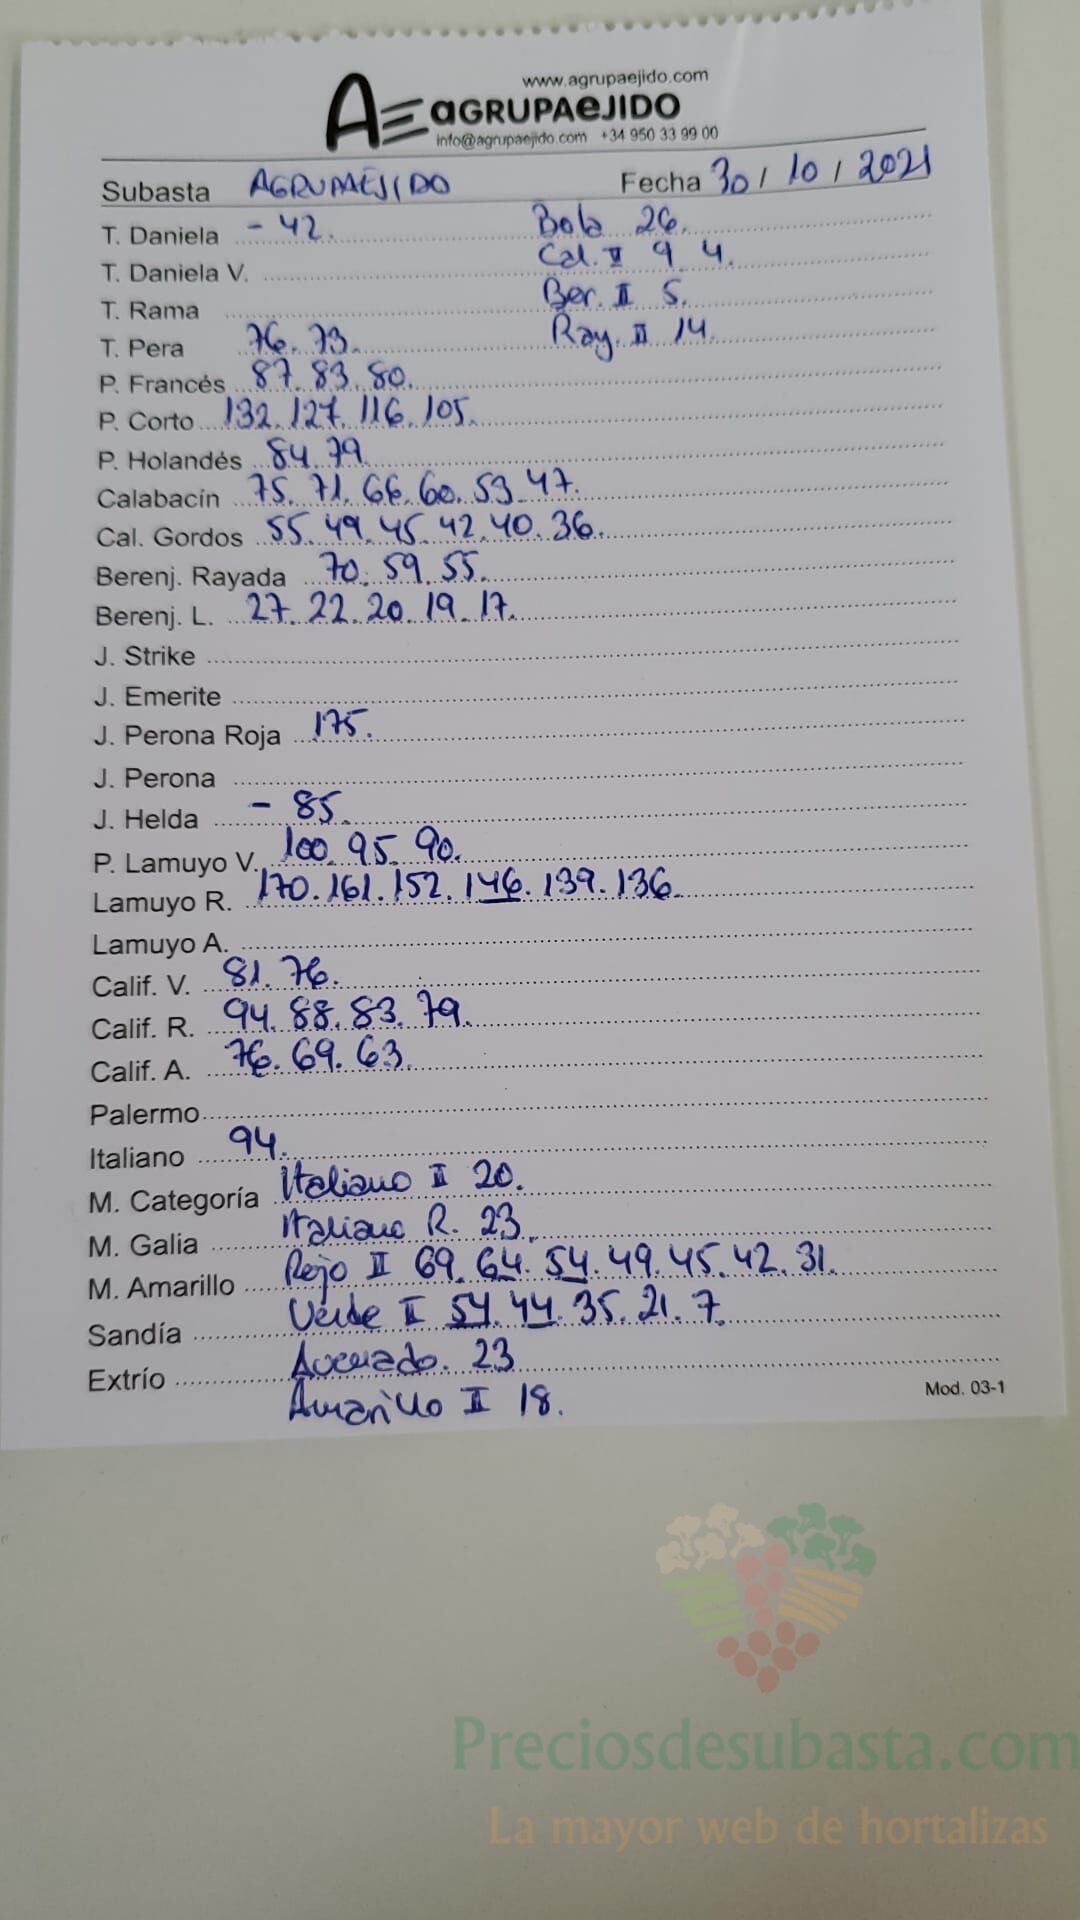 www.agrupaejido.com
AE aGRUPAeJIDO
info@agrupaejido.com +34 950 33 99 00
Subasta AGRUPAEJIDO Fecha 30 / 10 / 2021
T. Daniela - 42. Bola 26.
T. Daniela V. Cal. II 9 4.
T. Rama Ber. II 5.
T. Pera 76. 73. Ray. II 14.
P. Francés 87. 83. 80.
P. Corto 132. 127. 116. 105.
P. Holandés 84. 79.
Calabacín 75. 71. 66. 60. 53. 47.
Cal. Gordos 55. 49. 45. 42. 40. 36.
Berenj. Rayada 70. 59. 55.
Berenj. L. 27. 22. 20. 19. 17.
J. Strike
J. Emerite
J. Perona Roja 175.
J. Perona
J. Helda - 85.
P. Lamuyo V. 100. 95. 90.
Lamuyo R. 170. 161. 152. 146. 139. 136.
Lamuyo A.
Calif. V. 81. 76.
Calif. R. 94. 88. 83. 79.
Calif. A. 76. 69. 63.
Palermo
Italiano 94.
M. Categoría Italiano II 20.
M. Galia Italiano R. 23.
M. Amarillo Rojo II 69. 64. 54. 49. 45. 42. 31.
Sandía Verde II 54. 44. 35. 21. 7.
Extrío Asurado. 23
Amarillo II 18.
Mod. 03-1
Preciosdesubasta.com
La mayor web de hortalizas